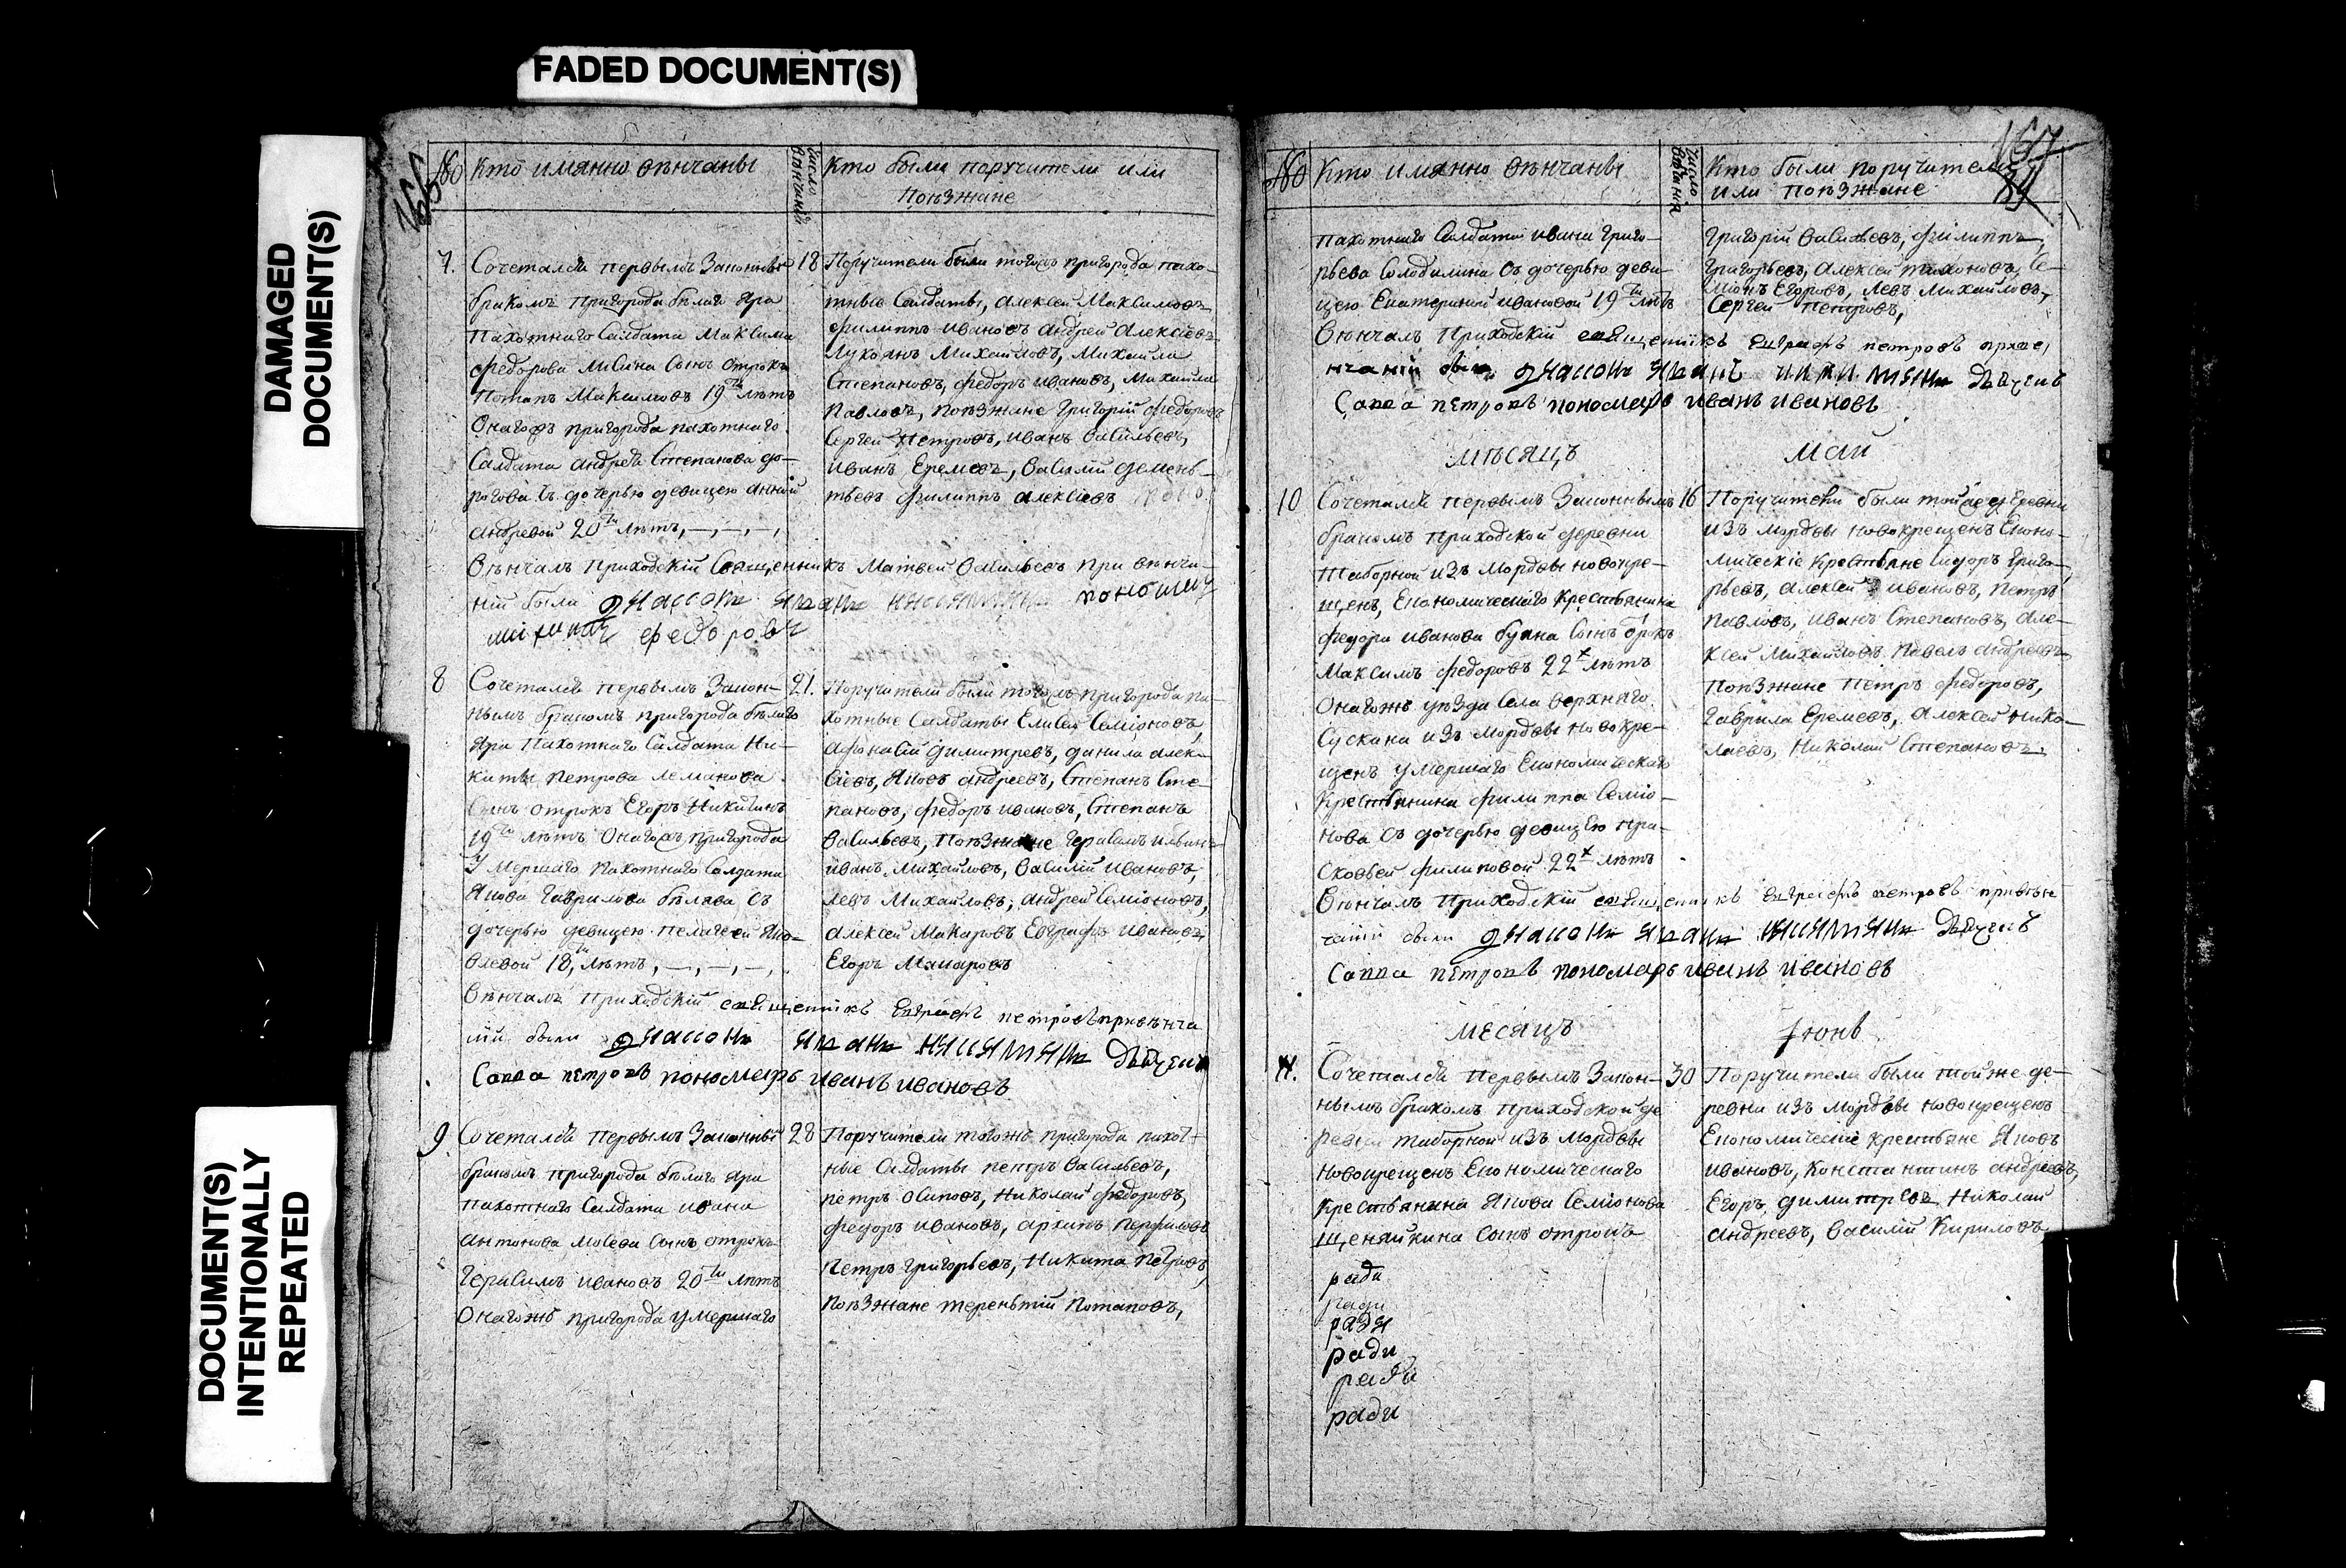 FADED DOCUMENT(S)
DAMAGED
DOCUMENT(S)
DOCUMENT(S)
INTENTIONALLY
REPEATED
№ Кто имянно вѣнчаны
Кто были поручители или
Поѣзжане
7. Сочетался первымъ Законнымъ
бракомъ Пригорода бѣлаго Яра
Пахотнаго Салдата Максима
федорова Сынъ Отрокъ
Потапъ Максимовъ 19ти лѣтъ
Онагожъ пригорода пахотнаго
Салдата андрея Степанова до-
рогова съ дочерью девицею анной
андревой 20ти лѣтъ,—,—,—,
18 Поручители были тогожъ пригорода пахо-
тные Салдаты, Алексей Максимовъ
филиппъ ивановъ андрей Алексѣевъ
Лукоянъ Михайловъ, Михайла
Степановъ, федоръ ивановъ, Михайла
Павловъ, поѣзжане Григорій федоровъ
Сергей Петровъ, иванъ Васильевъ,
иванъ Еремеевъ, Василий демень-
тьевъ филиппъ алексѣевъ
Вѣнчалъ Приходскій Священникъ Матвей Васильевъ при вѣнча-
ніи были
федоровъ
8 Сочетался первымъ Закон-
нымъ бракомъ пригорода бѣлаго
Яра Пахотнаго Салдата Ни-
киты Петрова
Сынъ отрокъ Егоръ Никитинъ
19ти лѣтъ Онагожъ Пригорода
Умершаго Пахотнаго Салдата
Якова Гаврилова бѣляева съ
дочерью девицею пелагеей Яко-
влевой 18ти лѣтъ,—,—,—,
21. Поручители были тогожъ пригорода па-
хотные Салдаты Елисей Семіоновъ,
афонасій димитревъ, данила алек-
сѣевъ, Яковъ андреевъ, Степанъ Сте-
пановъ, федоръ ивановъ, Степанъ
Васильевъ, Поѣзжане Герасимъ ильинъ
иванъ Михайловъ, Василій ивановъ,
левъ Михайловъ, андрей Семіоновъ,
алексей Макаровъ Евграфъ ивановъ,
Егоръ Макаровъ
Вѣнчалъ Приходскій священникъ Евграфъ петровъ при вѣнча
ніи были
Савва петровъ пономарь иванъ ивановъ
9 Сочетался первымъ Законнымъ
бракомъ пригорода бѣлаго Яра
пахотнаго Салдата ивана
антонова Сынъ отрокъ
Герасимъ ивановъ 20ти лѣтъ
Онагожъ пригорода умершаго
28 Поручители тогожъ пригорода пахот-
ные Салдаты петръ Васильевъ,
петръ осиповъ, Николай федоровъ,
федоръ ивановъ, архипъ перфиловъ
Петръ григорьевъ, Никита Петровъ,
Поѣзжане терентій Потаповъ,
№ Кто имянно вѣнчаны
Кто были поручители
или поѣзжане
167
пахотнаго Салдата ивана Григо-
рьева Солодилина съ дочерью деви-
цею Екатериной ивановой 19ти лѣтъ
Григорій Васильевъ, филиппъ
Григорьевъ, алексей тихоновъ, Се-
міонъ Егоровъ, левъ Михайловъ,
Сергей Петровъ,
Вѣнчалъ Приходскій священникъ Евграфъ петровъ при ве
нчаніи были
Савва петровъ пономарь иванъ ивановъ
Мѣсяцъ Май
10 Сочетался первымъ Законнымъ
бракомъ приходской деревни
Таборной изъ Мордвы новокре-
щенъ, Економическаго крестьянина
федора иванова Сынъ отрокъ
Максимъ федоровъ 22х лѣтъ
Онагожъ уѣзда Села верхняго
Сускана изъ Мордвы новокре-
щенъ умершаго Економическаго
крестьянина филиппа Семіо-
нова съ дочерью девицею пра-
сковьей филиповой 22х лѣтъ
16 Поручители были тойже деревни
изъ мордвы новокрещенъ Еконо-
мическіе крестьяне Сидоръ Григо-
рьевъ, алексей ивановъ, петръ
павловъ, иванъ Степановъ, але-
ксей Михайловъ Павелъ андреевъ
Поѣзжане Петръ федоровъ,
Гаврила Еремеевъ, Алексей нико-
лаевъ, Николай Степановъ.
Вѣнчалъ Приходскій священникъ Евграфъ петровъ при вѣн
чаніи были
Савва петровъ пономарь иванъ ивановъ
Месяцъ Іюнь
11. Сочетался первымъ Закон-
нымъ бракомъ приходской де
ревни таборной изъ Мордвы
новокрещенъ Економическаго
крестьянина Якова Семіонова
Щеняйкина Сынъ отрокъ
30 Поручители были тойже де-
ревни изъ Мордвы новокрещенъ
Економическіе крестьяне Яковъ
ивановъ, Константинъ андреевъ,
Егоръ димитревъ Николай
андреевъ, василій Кириловъ
ради
ради
радя
ради
ради
ради